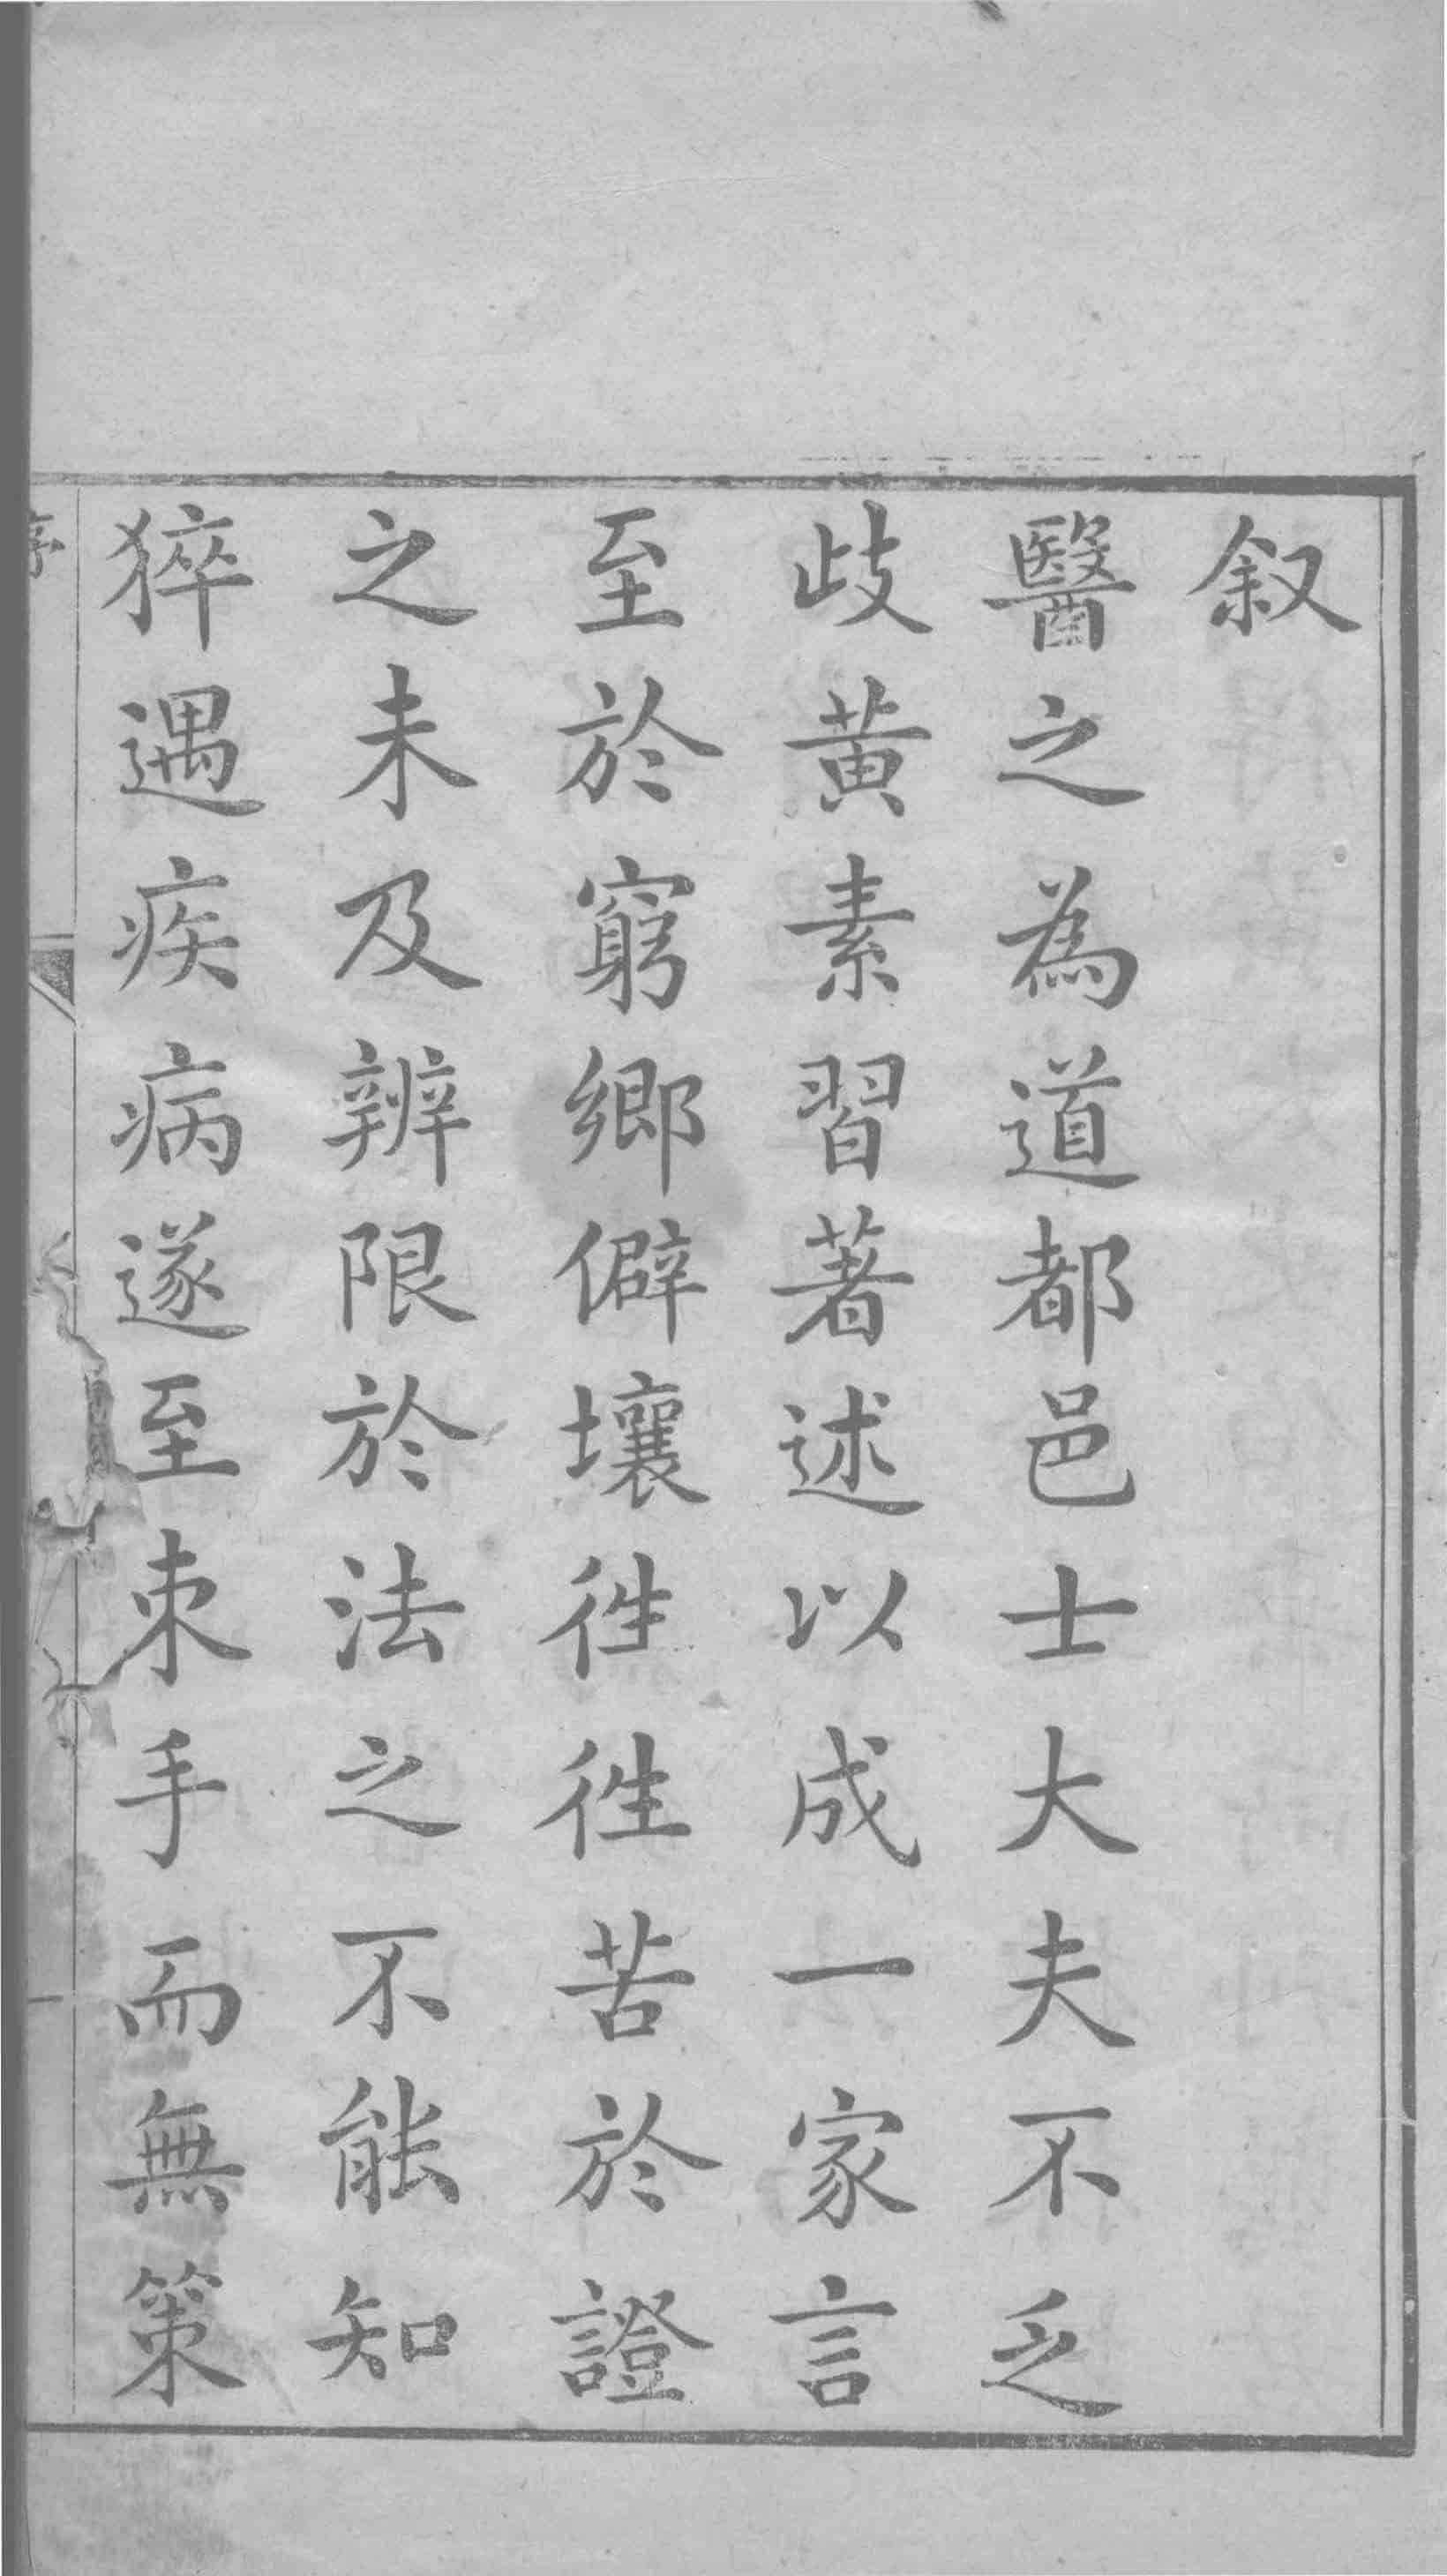 叙
醫之為道都邑士大夫不乏
歧黃素習著述以成一家言
至於窮鄉僻壤徃徃苦於證
之未及辨限於法之不能知
猝遇疾病遂至束手而無策
序
一